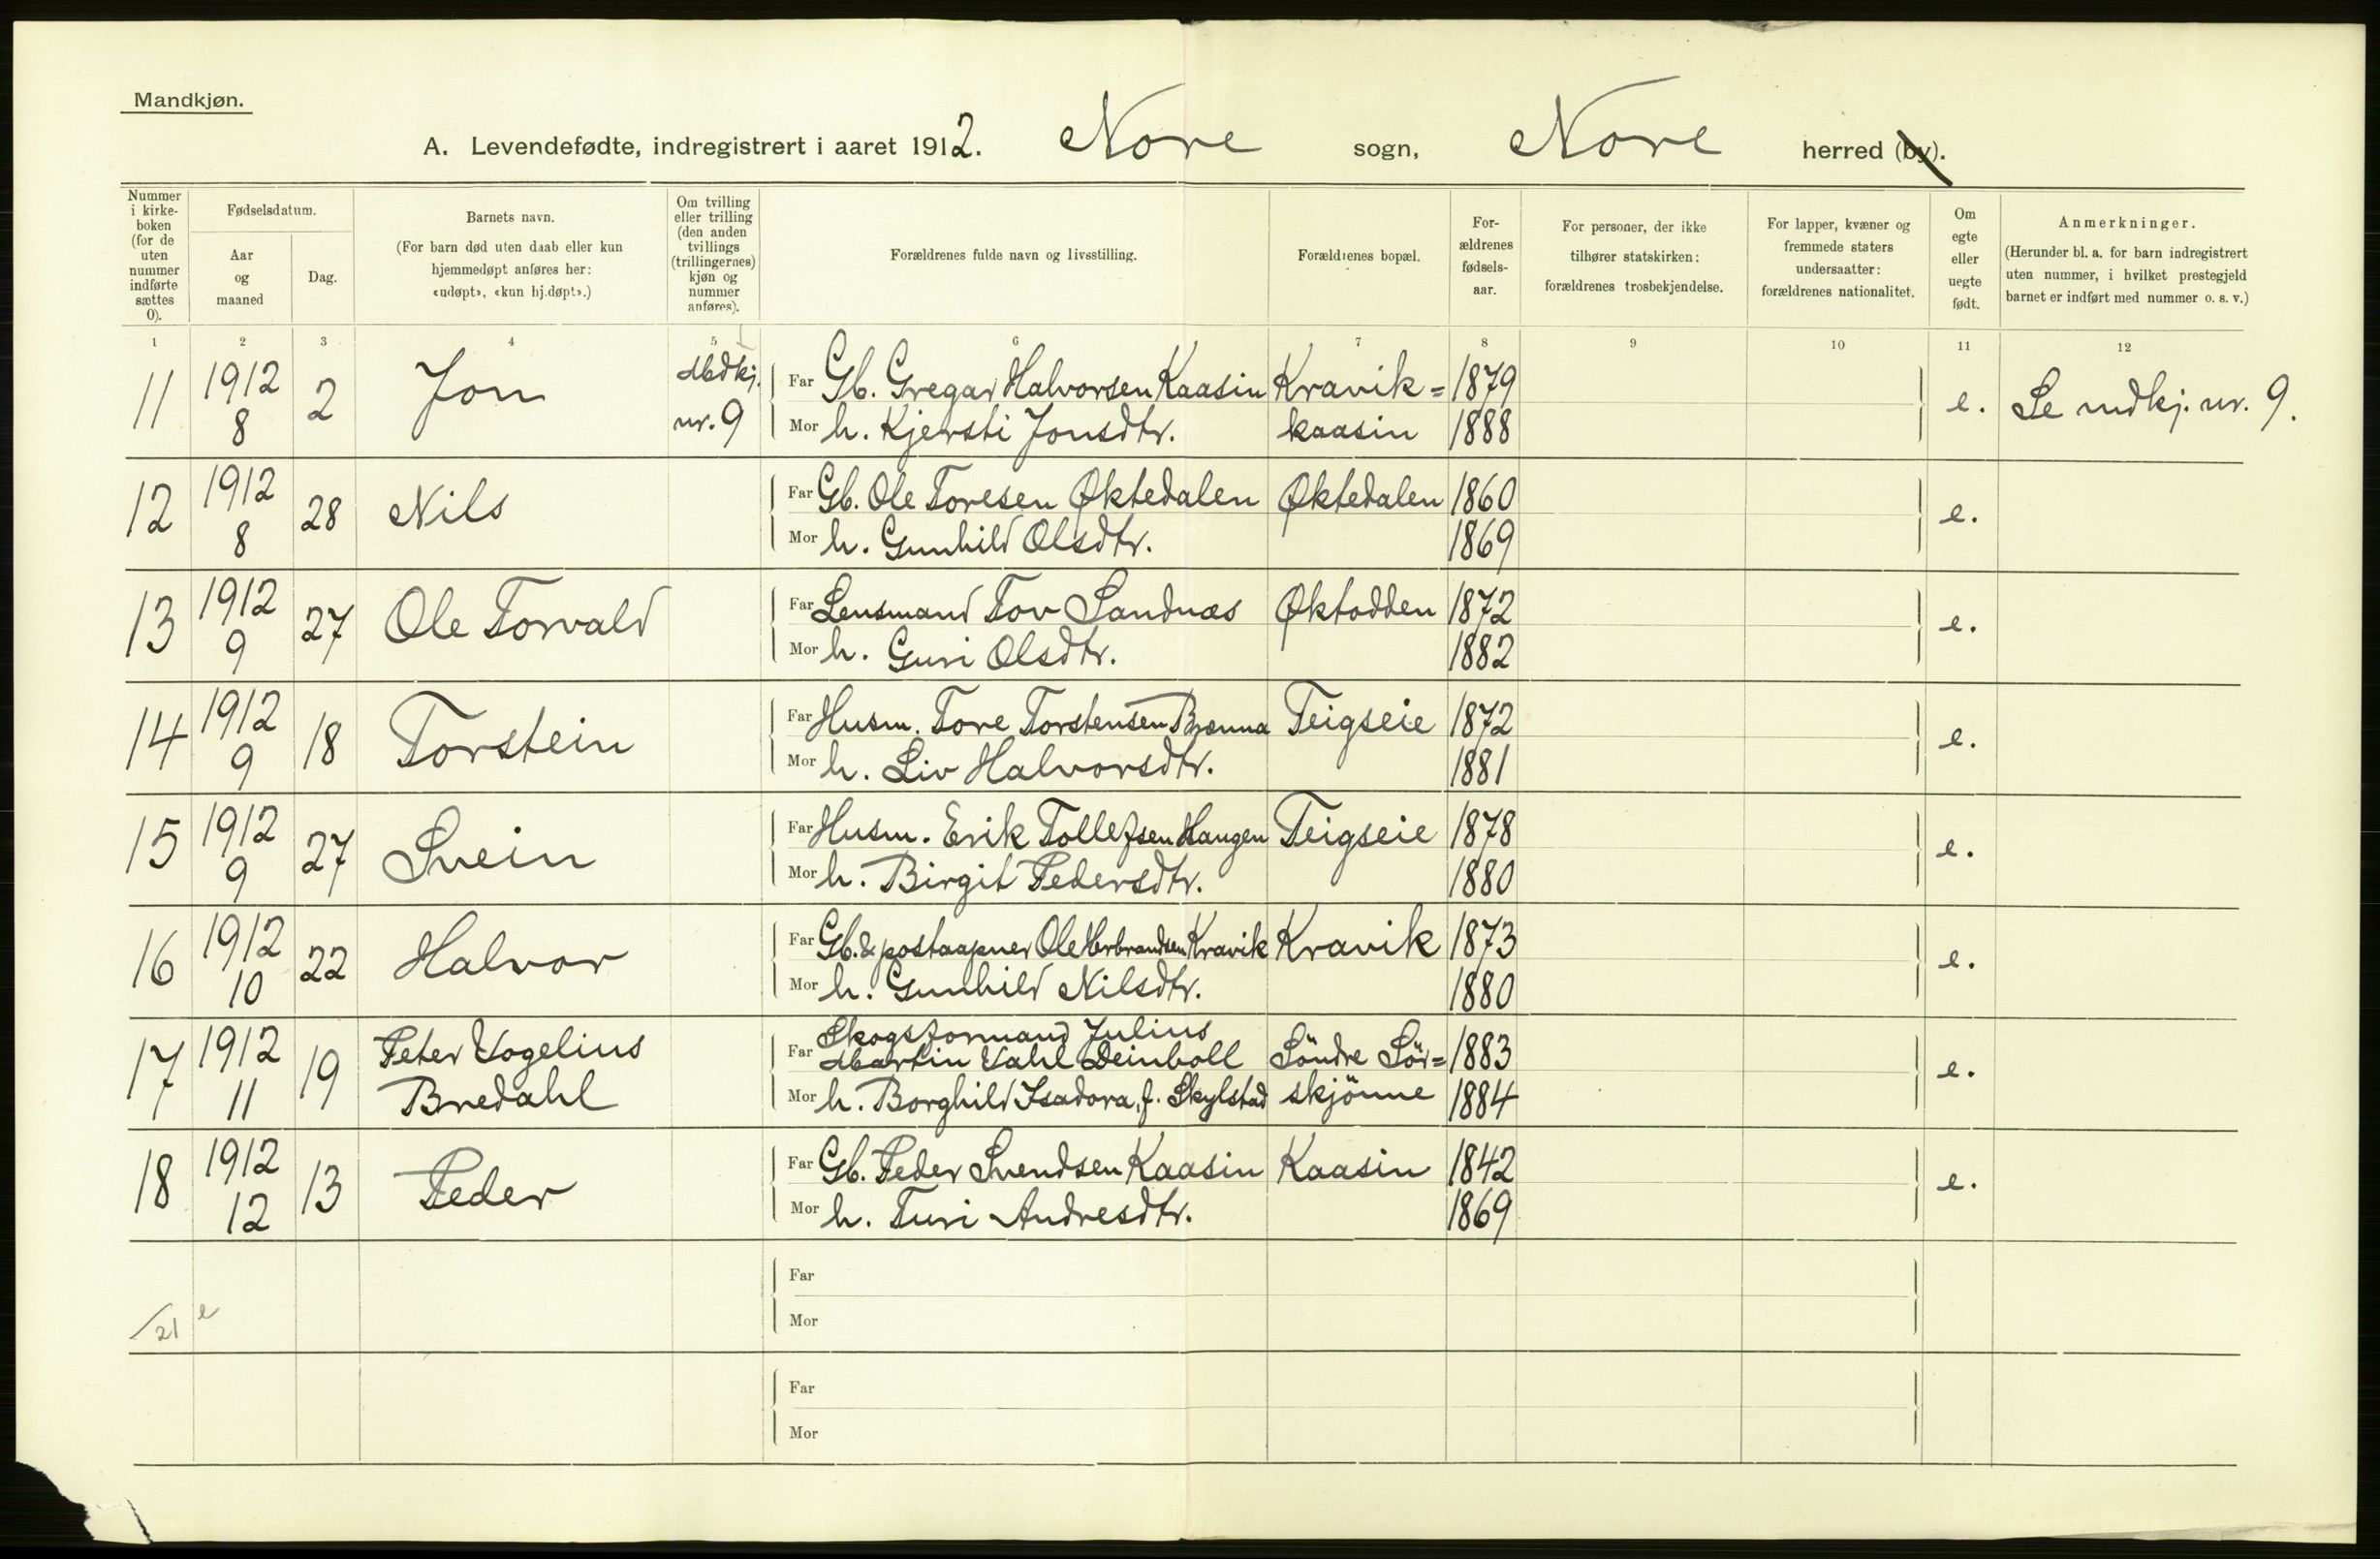 Mandkjøn.
A. Levendefødte, indregistrert i aaret 1912. Nore sogn, Nore herred (by).
Nummer i kirke-boken (for de uten nummer indførte sættes 0).
Fødselsdatum.
Aar og maaned
Dag.
Barnets navn.
(For barn død uten daab eller kun hjemmedøpt anføres her: «udøpt», «kun hj.døpt».)
Om tvilling eller trilling (den anden tvillings (trillingernes) kjøn og nummer anføres).
Forældrenes fulde navn og livsstilling.
Forældrenes bopæl.
For-ældrenes fødsels-aar.
For personer, der ikke tilhører statskirken: forældrenes trosbekjendelse.
For lapper, kvæner og fremmede staters undersaatter: forældrenes nationalitet.
Om egte eller uegte født.
Anmerkninger.
(Herunder bl. a. for barn indregistrert uten nummer, i hvilket prestegjeld barnet er indført med nummer o. s. v.)
1 2 3 4 5 6 7 8 9 10 11 12
11 1912 8 2 Jon Mdkj. nr. 9 Far Gb. Gregar Halvorsen Kaasin Kravik= 1879 e. Se mdkj. nr. 9.
Mor h. Kjersti Jonsdtr. kaasin 1888
12 1912 8 28 Nils Far Gb. Ole Toresen Øktedalen Øktedalen 1860 e.
Mor h. Gunhild Olsdtr. 1869
13 1912 9 27 Ole Torvald Far Lensmand Tov Sandnæs Øktodden 1872 e.
Mor h. Guri Olsdtr. 1882
14 1912 9 18 Torstein Far Husm. Tore Torstensen Brænna Teigseie 1872 e.
Mor h. Liv Halvorsdtr. 1881
15 1912 9 27 Svein Far Husm. Erik Tollefsen Haugen Teigseie 1878 e.
Mor h. Birgit Pedersdtr. 1880
16 1912 10 22 Halvor Far Gb. & postaapner Ole Herbrandsen Kravik Kravik 1873 e.
Mor h. Gunhild Nilsdtr. 1880
17 1912 11 19 Peter Vogelius Bredahl Far Skogsformand Julius Martin Vahl Deinboll Söndre Sör= 1883 e.
Mor h. Borghild Isadora, f. Skylstad skjönne 1884
18 1912 12 13 Peder Far Gb. Peder Svendsen Kaasin Kaasin 1842 e.
Mor h. Turi Andresdtr. 1869
Far
/21 e
Mor
Far
Mor